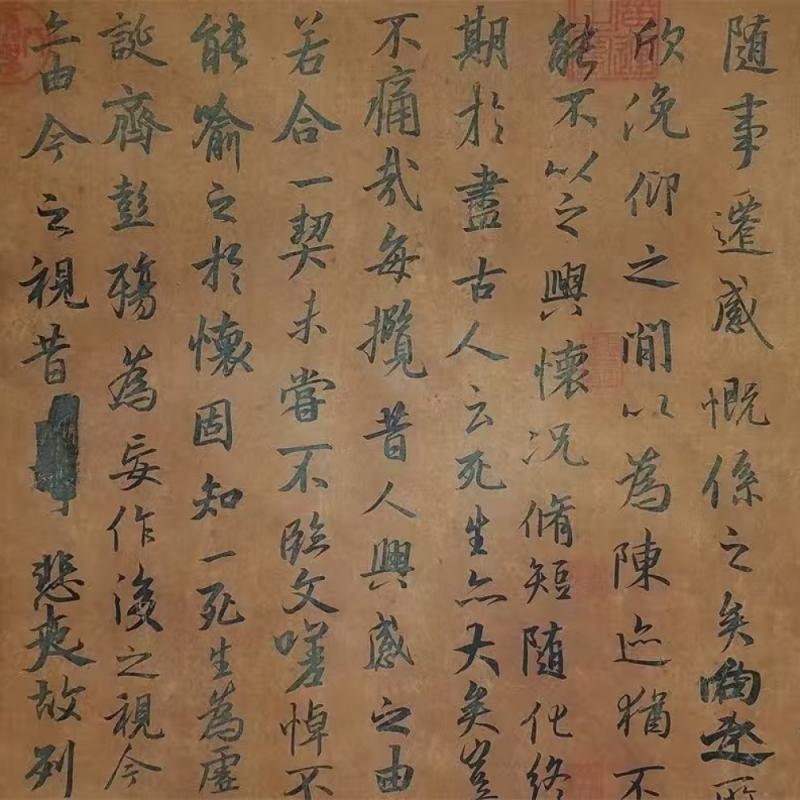 隨事遷感慨係之矣向之所
欣俛仰之閒以為陳迹猶不
能不以之興懷況脩短隨化終
期於盡古人云死生亦大矣豈
不痛哉每攬昔人興感之由
若合一契未嘗不臨文嗟悼不
能喻之於懷固知一死生為虛
誕齊彭殤為妄作後之視今
亦由今之視昔悲夫故列